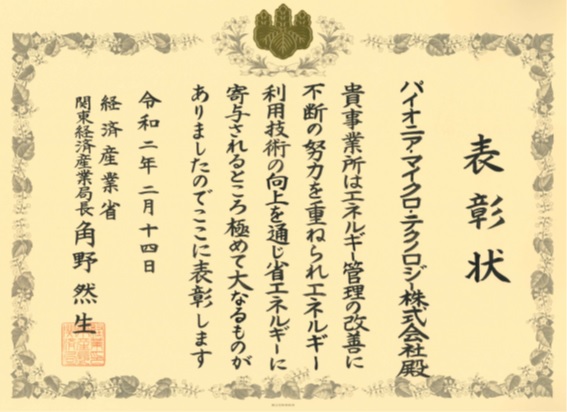 表彰状
パイオニア・マイクロ・テクノロジー株式会社殿
貴事業所はエネルギー管理の改善に
不断の努力を重ねられエネルギー
利用技術の向上を通じ省エネルギーに
寄与されるところ極めて大なるものが
ありましたのでここに表彰します
令和二年二月十四日
経済産業省
関東経済産業局長 角野然生